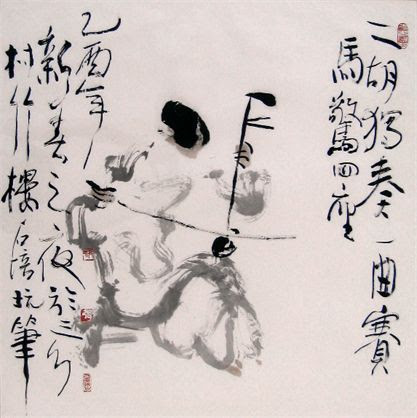 二胡獨奏一曲賽
馬驚四座
乙酉年
新春之夜於三
村竹樓石培玩筆